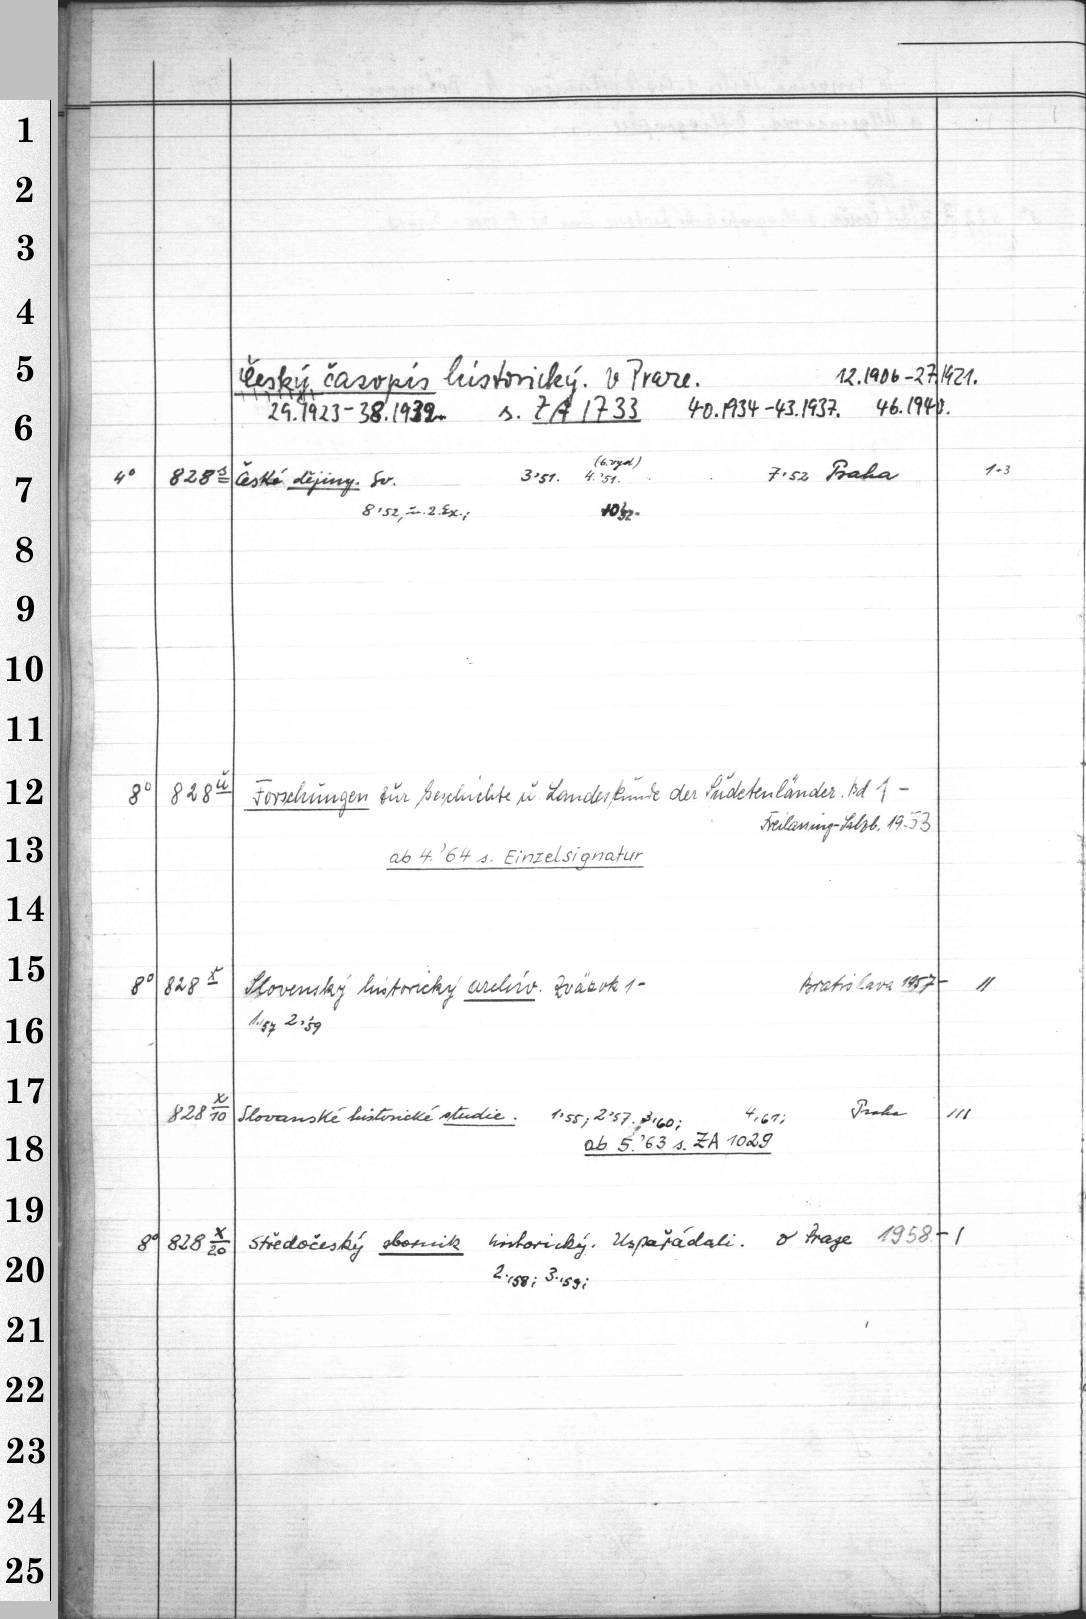 1
2
3
4
5 Český časopis historický. V Praze. 12.1906-27.1921.
6 29.1923-38.1932. s. ZA 1733 40.1934-43.1937. 46.1940.
(6. vyd)
7 4° 828 s České dějiny. Sv. 3.'51. 4.'51. 7.'52 Praha 1-3
8.'52, 2. Ex.; 10.'52.
8
9
10
11
12 8° 828 ŭ Forschungen zur Geschichte u. Landeskunde der Sudetenländer. Bd 1 -
Freilassing-Salzb. 1953
13 ab 4.'64 s. Einzelsignatur
14
15 8° 828 x Slovenský historický archív. Zväzok 1- Bratislava 1957- II
16 1.'57 2.'59
17 828 x/10 Slovanské historické studie. 1.'55; 2.'57. 3.'60; 4.'61; Praha III
18 ab 5.'63 s. ZA 1029
19 8° 828 x/20 Středočeský sborník historický. Uspořádali. V Praze 1958- I
20 2.'58; 3.'59;
21
22
23
24
25